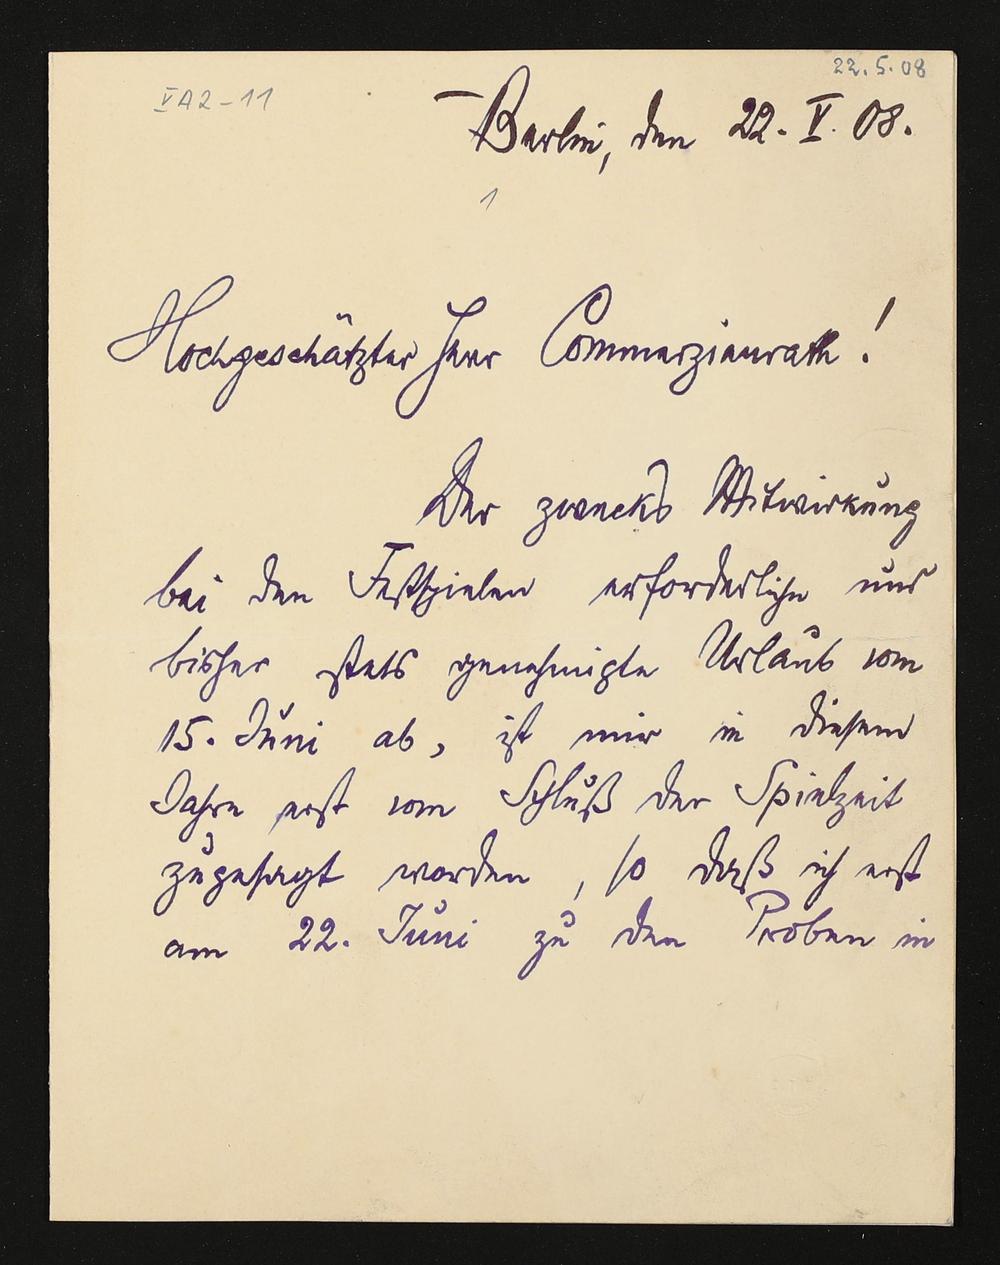 22.5.08
VA2-11
Berlin, den 22. V. 08.
1
Hochgeschätzter Herr Commerzienrath!
Der zwecks Mitwirkung
bei den Festspielen erforderliche und
bisher stets genehmigte Urlaub vom
15. Juni ab, ist mir in diesem
Jahre erst vom Schluß der Spielzeit
zugesagt worden, so daß ich erst
am 22. Juni zu den Proben in